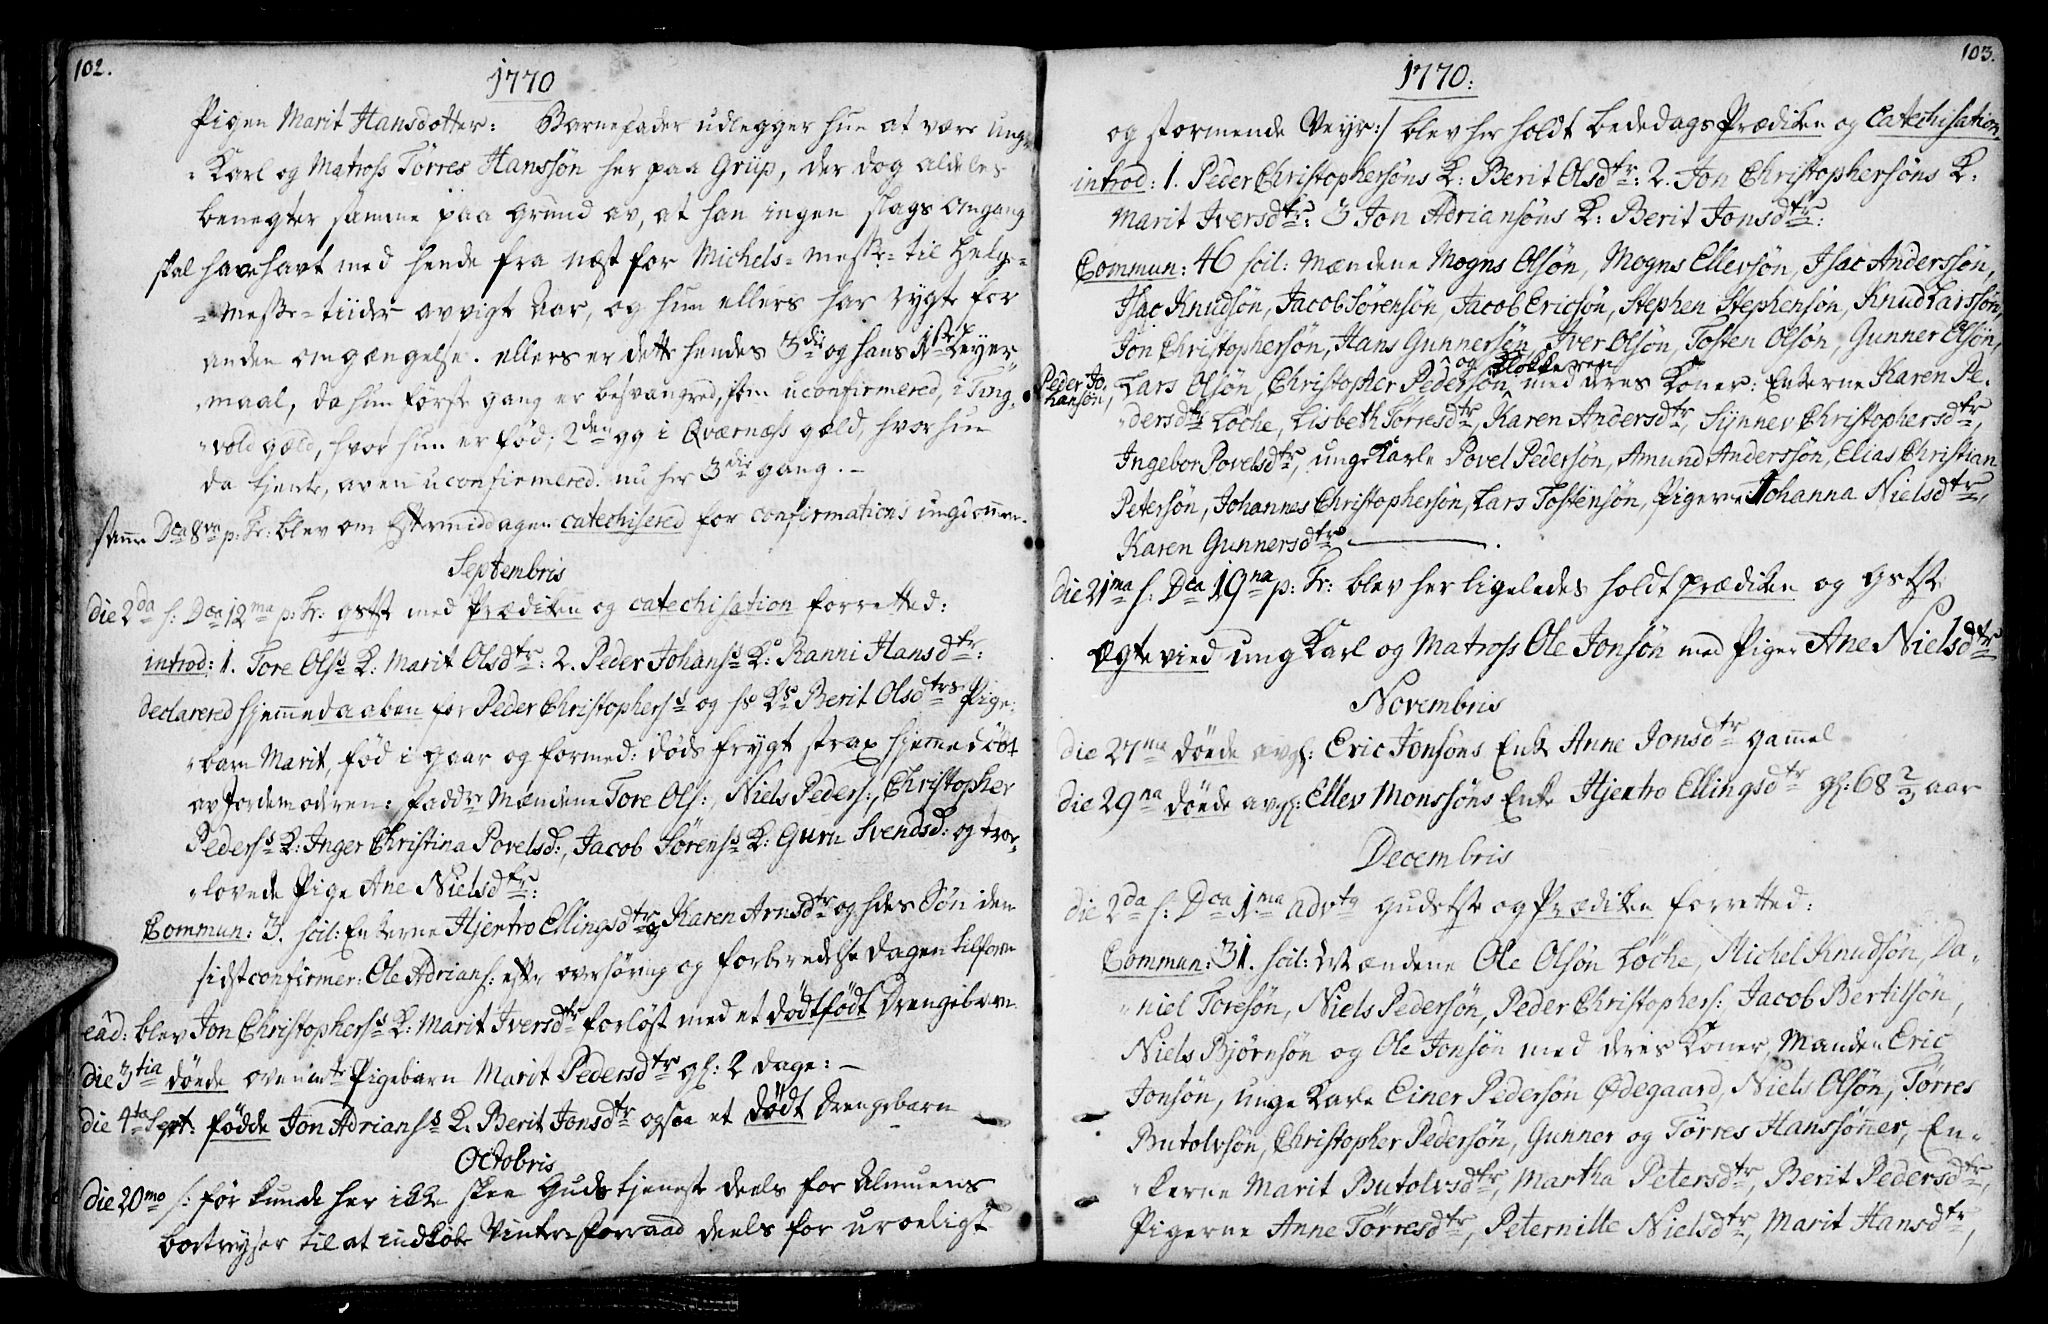 102.
1770
Pigen Marit Hansdotter: Barnefader udlegger hun at være Ung-
Karl og Matross Törres Hanssön her paa Grüp, der dog aldeles
benegter samme paa Grund av, at han ingen slags omgang
skal have havt med hende fra næst for Michels-messe- til Helge-
-messe-tiider avvigt Aar, og hun ellers har Rygte for
anden omgængelse. ellers er dette hendes 3die og hans 1ste Leyer
maal, da hun første gang er besvangred, som uconfirmered, i Ting
vold gæld, hvor hun er fød; 2den gg i Qværness gæld, hvor hun
da tjente, aven uconfirmered. nu her 3die gang.-
samme Dca 8va p: Tr: blev om Eftermiddagen catechisered for confirmations ungdommen.
Septembris
die 2da s: Dca 12ma p: Tr: gstst med Prædiken og catechisation forretted:
introd: 1. Tore Olss K: Marit Olsdtr: 2. Peder Johanss K: Ranni Hansdtr:
declarered hjemmedaaben for Peder Christophers s og hs Ks Berit Olsdtrs Pige-
barn Marit, fød i gaar og formed: döds frygt strax hjemmedöbt
av Jordemoderen: faddre Mændene Tore Ols:, Niels Peders:, Christopher
Peders s K: Inger Christina Povelsd:, Jacob Sörens s K: Guru Svendsd: og trov-
lovede Pige Ane Nielsdtr:
Commun: 3. scil: Enkerne Hjentro Ellingsdtr og Karen Arnsdtr og hdes Sön den
sidst confirmer: Ole Adrians: eftr overhöring og forberedelse dagen tilforn
eâd: blev Jon Christophers s K: Marit Iversdtr forlöst med et dödtfödt Drengebarn
die 3tia döede ovenmte Pigebarn Marit Pedersdtr gl: 2 dage:-
die 4ta Sept: födde Jon Adrians s K. Berit Jonsdtr ogsaa et dödt Drengebarn
Octobris
die 20mo /: för kunde her ikke skee Gudstjeneste deels for Almuens
bortreyser til at indkiöbe Vinterforraad deels for uroeligt
103.
1770:
og stormende Veyr:/ blev her holdt bededags Prædiken og Catechisation
introd: 1. Peder Christophersöns K: Berit Olsdtr: 2. Jon Christophersöns K:
Marit Iversdtr: 3 Jon Adriansöns K: Berit Jonsdtr:
Commun: 46 scil: Mændene Mogns Olsön, Mogns Ellersön, Isac Anderssön,
Isac Knudsön, Jacob Sörensön, Jacob Ericsön, Stephen Stephensön, Knud Larssön,
Jon Christophersön, Hans Gunnersön, Iver Olsön, Tosten Olsön, Gunner Olsön,
Peder Johansön, Lars Olsön, Christopher Pedersön, og Klokkeren med deres Koner: Enkerne Karen Pe-
dersdtr Löche, Lisbeth Törresdtr, Karen Andersdtr, Synnev Christophersdtr,
Ingebor Povelsdtr, unge Karle Povel Pedersön, Amund Anderssön, Elias Christian
Petersön, Johannes Christophersön, Lars Tostensön, Pigerne Johanna Nielsdtr,
Karen Gunnersdtr.
die 21ma s: Dca 19na p: Tr: blev her ligeledes holdt prædiken og gstst
Ægtevied ungKarl og Matross Ole Jonsön med Pigen Ane Nielsdtr
Novembris
die 27ma döede avgl: Eric Jonsöns Enke Anne Jonsdtr gammel
die 29na döede avgl: Ellev Monssöns Enke Hjentro Ellingsdtr gl: 68 2/3 aar
Decembris
die 2da s: Dca 1ma advtq gudstste og Prædiken forretted:
Commun: 31. scil: Mændene Ole Olsön Löche, Michel Knudsön, Da-
niel Toresön, Niels Pedersön, Peder Christophers:, Jacob Bertilsön,
Niels Björnsön og Ole Jonsön med deres Koner, Manden Eric
Jonsön, unge Karle Einer Pedersön Ödegaard, Niels Olsön, Törres
Butolvsön, Christopher Pedersön, Gunner og Törres Hanssönner, En-
kerne Marit Butolvsdtr, Martha Petersdtr, Berit Pedersdtr,
Pigerne Anne Törresdtr, Peternille Nielsdtr, Marit Hansdtr,